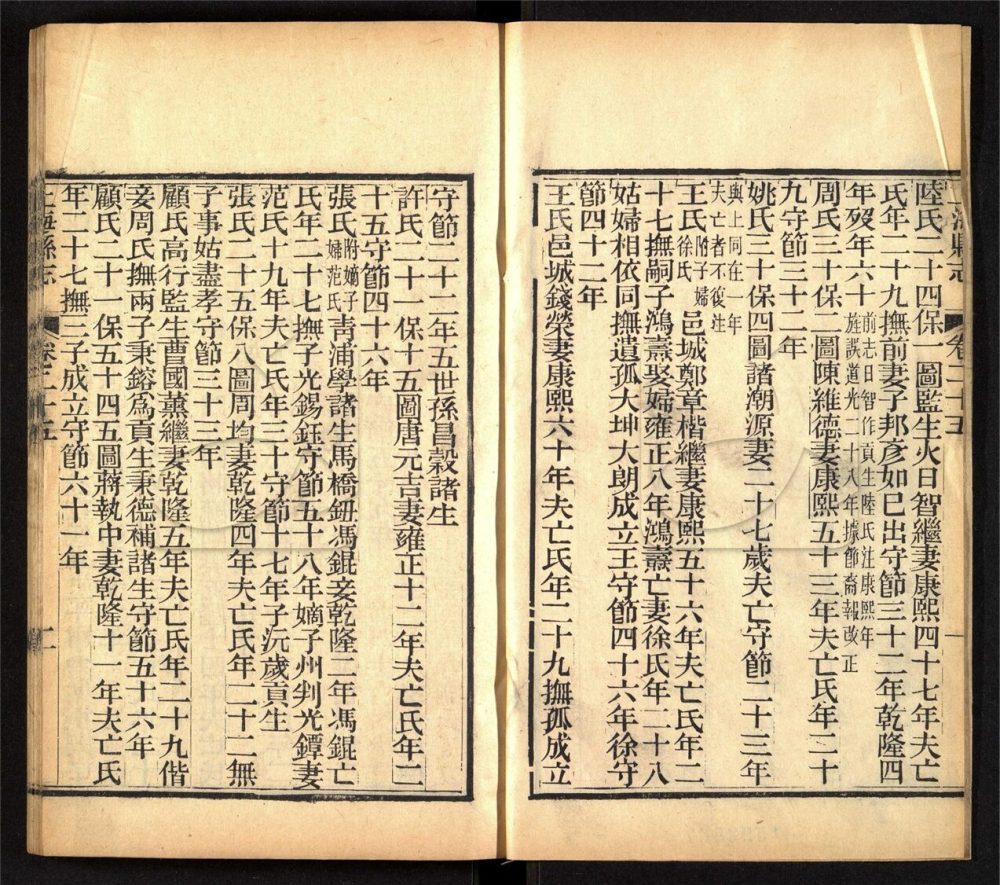 上海縣志 卷二十五 一
陸氏二十四保一圖監生火日智繼妻康熙四十七年夫亡
氏年二十九撫前妻子邦彥如己出守節三十二年乾隆四
年歿年六十前志日智作貢生陸氏注康熙年
旌誤道光二十八年據節裔報改正
周氏三十保二圖陳維德妻康熙五十三年夫亡氏年二十
九守節三十二年
姚氏三十保四圖諸潮源妻二十七歲夫亡守節二十三年
與上同在一年
夫亡者不復注
王氏附子婦
徐氏邑城鄭章楷繼妻康熙五十六年夫亡氏年二
十七撫嗣子鴻燾娶婦雍正八年鴻燾亡妻徐氏年二十八
姑婦相依同撫遺孤大坤大朗成立王守節四十六年徐守
節四十二年
王氏邑城錢榮妻康熙六十年夫亡氏年二十九撫孤成立
守節二十二年五世孫昌穀諸生
許氏二十一保十五圖唐元吉妻雍正十二年夫亡氏年二
十五守節四十六年
張氏附嫡子
婦范氏靑浦學諸生馬橋鈕馮錕妾乾隆二年馮錕亡
氏年二十七撫子光錫鈺守節五十八年嫡子州判光鐔妻
范氏十九年夫亡氏年三十守節十七年子沅歲貢生
張氏二十五保八圖周均妻乾隆四年夫亡氏年二十二無
子事姑盡孝守節三十三年
顧氏高行監生曹國薰繼妻乾隆五年夫亡氏年二十九偕
妾周氏撫兩子秉鎔爲貢生秉德補諸生守節五十六年
顧氏二十一保五十四五圖蔣執中妻乾隆十一年夫亡氏
年二十七撫二子成立守節六十一年
上海縣志 卷二十五 二